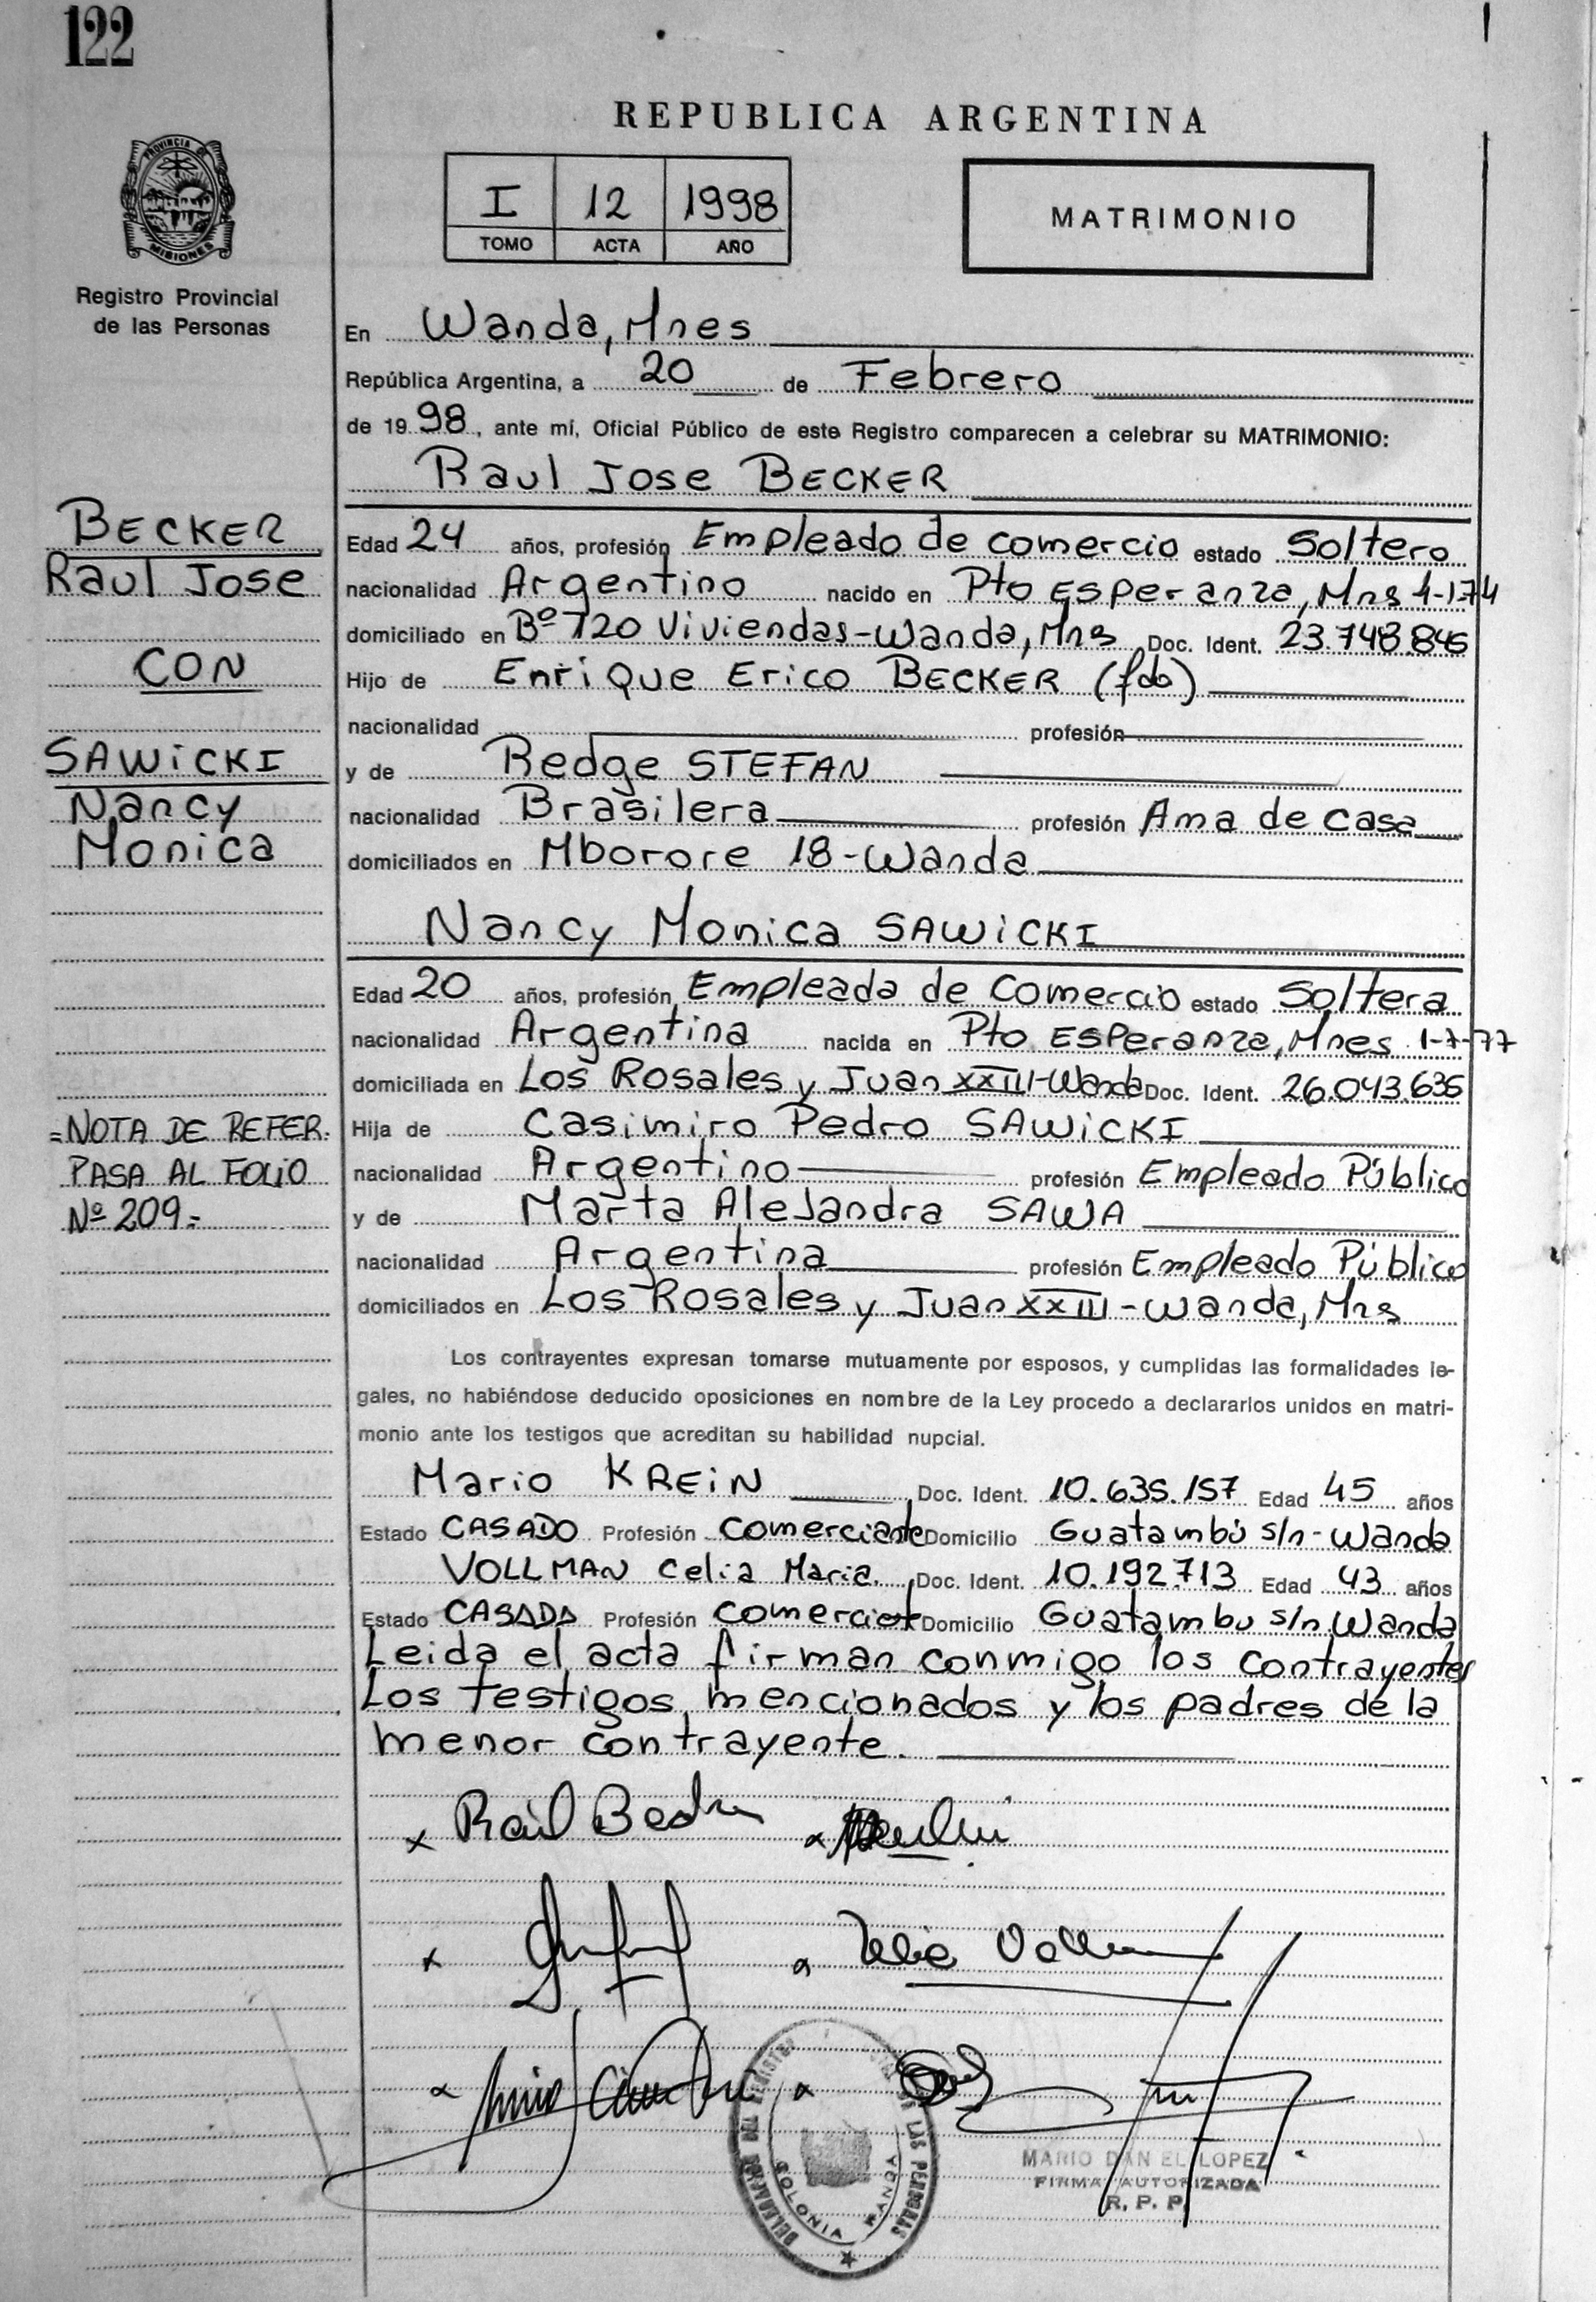 122
REPUBLICA ARGENTINA
PROVINCIA DE
MISIONES
I 12 1998
TOMO ACTA AÑO
MATRIMONIO
Registro Provincial
de las Personas
En Wanda, Mnes
República Argentina, a 20 de Febrero
de 1998, ante mí, Oficial Público de este Registro comparecen a celebrar su MATRIMONIO:
Raul Jose BECKER
BECKER
Raul Jose
CON
SAWiCKI
Nancy
Monica
Edad 24 años, profesión Empleado de comercio estado Soltero
nacionalidad Argentino nacido en Pto ESPeranza, Mns 4-1-74
domiciliado en Bº 720 Viviendas-Wanda, Mns Doc. Ident. 23.748.845
Hijo de Enrique Erico BECKER (fdo)
nacionalidad profesión
y de Redge STEFAN
nacionalidad Brasilera profesión Ama de casa
domiciliados en Mborore 18-Wanda
Nancy Monica SAWiCKI
Edad 20 años, profesión Empleada de Comercio estado Soltera
nacionalidad Argentina nacida en Pto ESPeranza, Mnes 1-7-77
domiciliada en Los Rosales y Juan XXIII-Wanda Doc. Ident. 26.043.635
=NOTA DE REFER.
PASA AL FOLIO
Nº 209.-
Hija de Casimiro Pedro SAWiCKI
nacionalidad Argentino profesión Empleado Público
y de Marta Alejandra SAWA
nacionalidad Argentina profesión Empleado Público
domiciliados en Los Rosales y Juan XXIII-Wanda, Mns
Los contrayentes expresan tomarse mutuamente por esposos, y cumplidas las formalidades le-
gales, no habiéndose deducido oposiciones en nombre de la Ley procedo a declararlos unidos en matri-
monio ante los testigos que acreditan su habilidad nupcial.
Mario KREiN, Doc. Ident. 10.635.157 Edad 45 años
Estado CASADO Profesión Comerciante Domicilio Guatambú s/n-Wanda
VOLLMAN Celia Maria, Doc. Ident. 10.192.713 Edad 43 años
Estado CASADA Profesión Comerciante Domicilio Guatambu s/n Wanda
Leida el acta firman conmigo los contrayentes
Los testigos mencionados y los padres de la
menor contrayente.
x Raúl
DELEGACION DEL REGISTRO DE LAS PERSONAS
COLONIA WANDA
MARIO DANIEL LOPEZ
FIRMA AUTORIZADA
R. P. P.